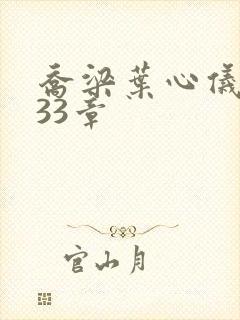 乔梁葉心儀
33章
官山月